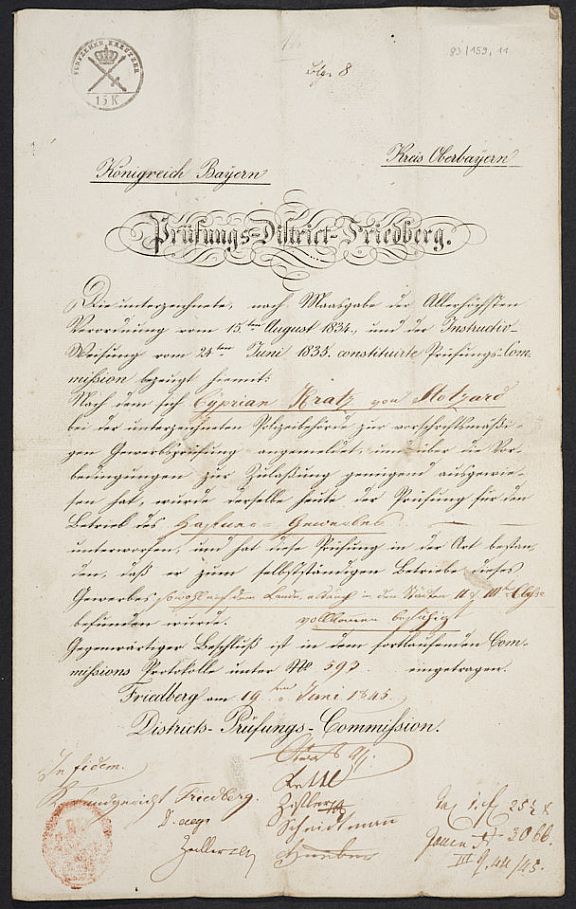 93/159,11
FÜNFZEHEN KREUTZER
15 K
8
Königreich Bayern
Kreis Oberbayern
Prüfungs-District-Friedberg.
Die unterzeichnete, nach Maasgabe der Allerhöchsten
Verordnung vom 15ten August 1834, und der Instructio-
Weisung vom 24ten Juni 1835. constituirte Prüfungs-Com-
mission bezeugt hiemit:
Nach dem sich Cyprian Kratz von Motzard
bei der unterzeichneten Polizeibehörde zur vorschriftsmäßi-
gen Gewerbsprüfung angemeldet, und über die Vor-
bedingungen zur Zulaßung genügend ausgewie-
sen hat, wurde derselbe heute der Prüfung für den
Betrieb des Hafner-Gewerbes
unterworfen, und hat diese Prüfung in der Art bestan-
den, daß er zum selbstständigen Betriebe dieses
Gewerbes sowohl auf dem Lande als auch in den Städten II & III Classe
befunden wurde. vollkommen befähigt
Gegenwärtiger Beschluß ist in dem fortlaufenden Com-
missions Protokolle unter No 593. eingetragen.
Friedberg am 19ten Juni 1845
Districts-Prüfungs-Commission.
In fidem.
K. Landgericht Friedberg.
Schridtman
Huber